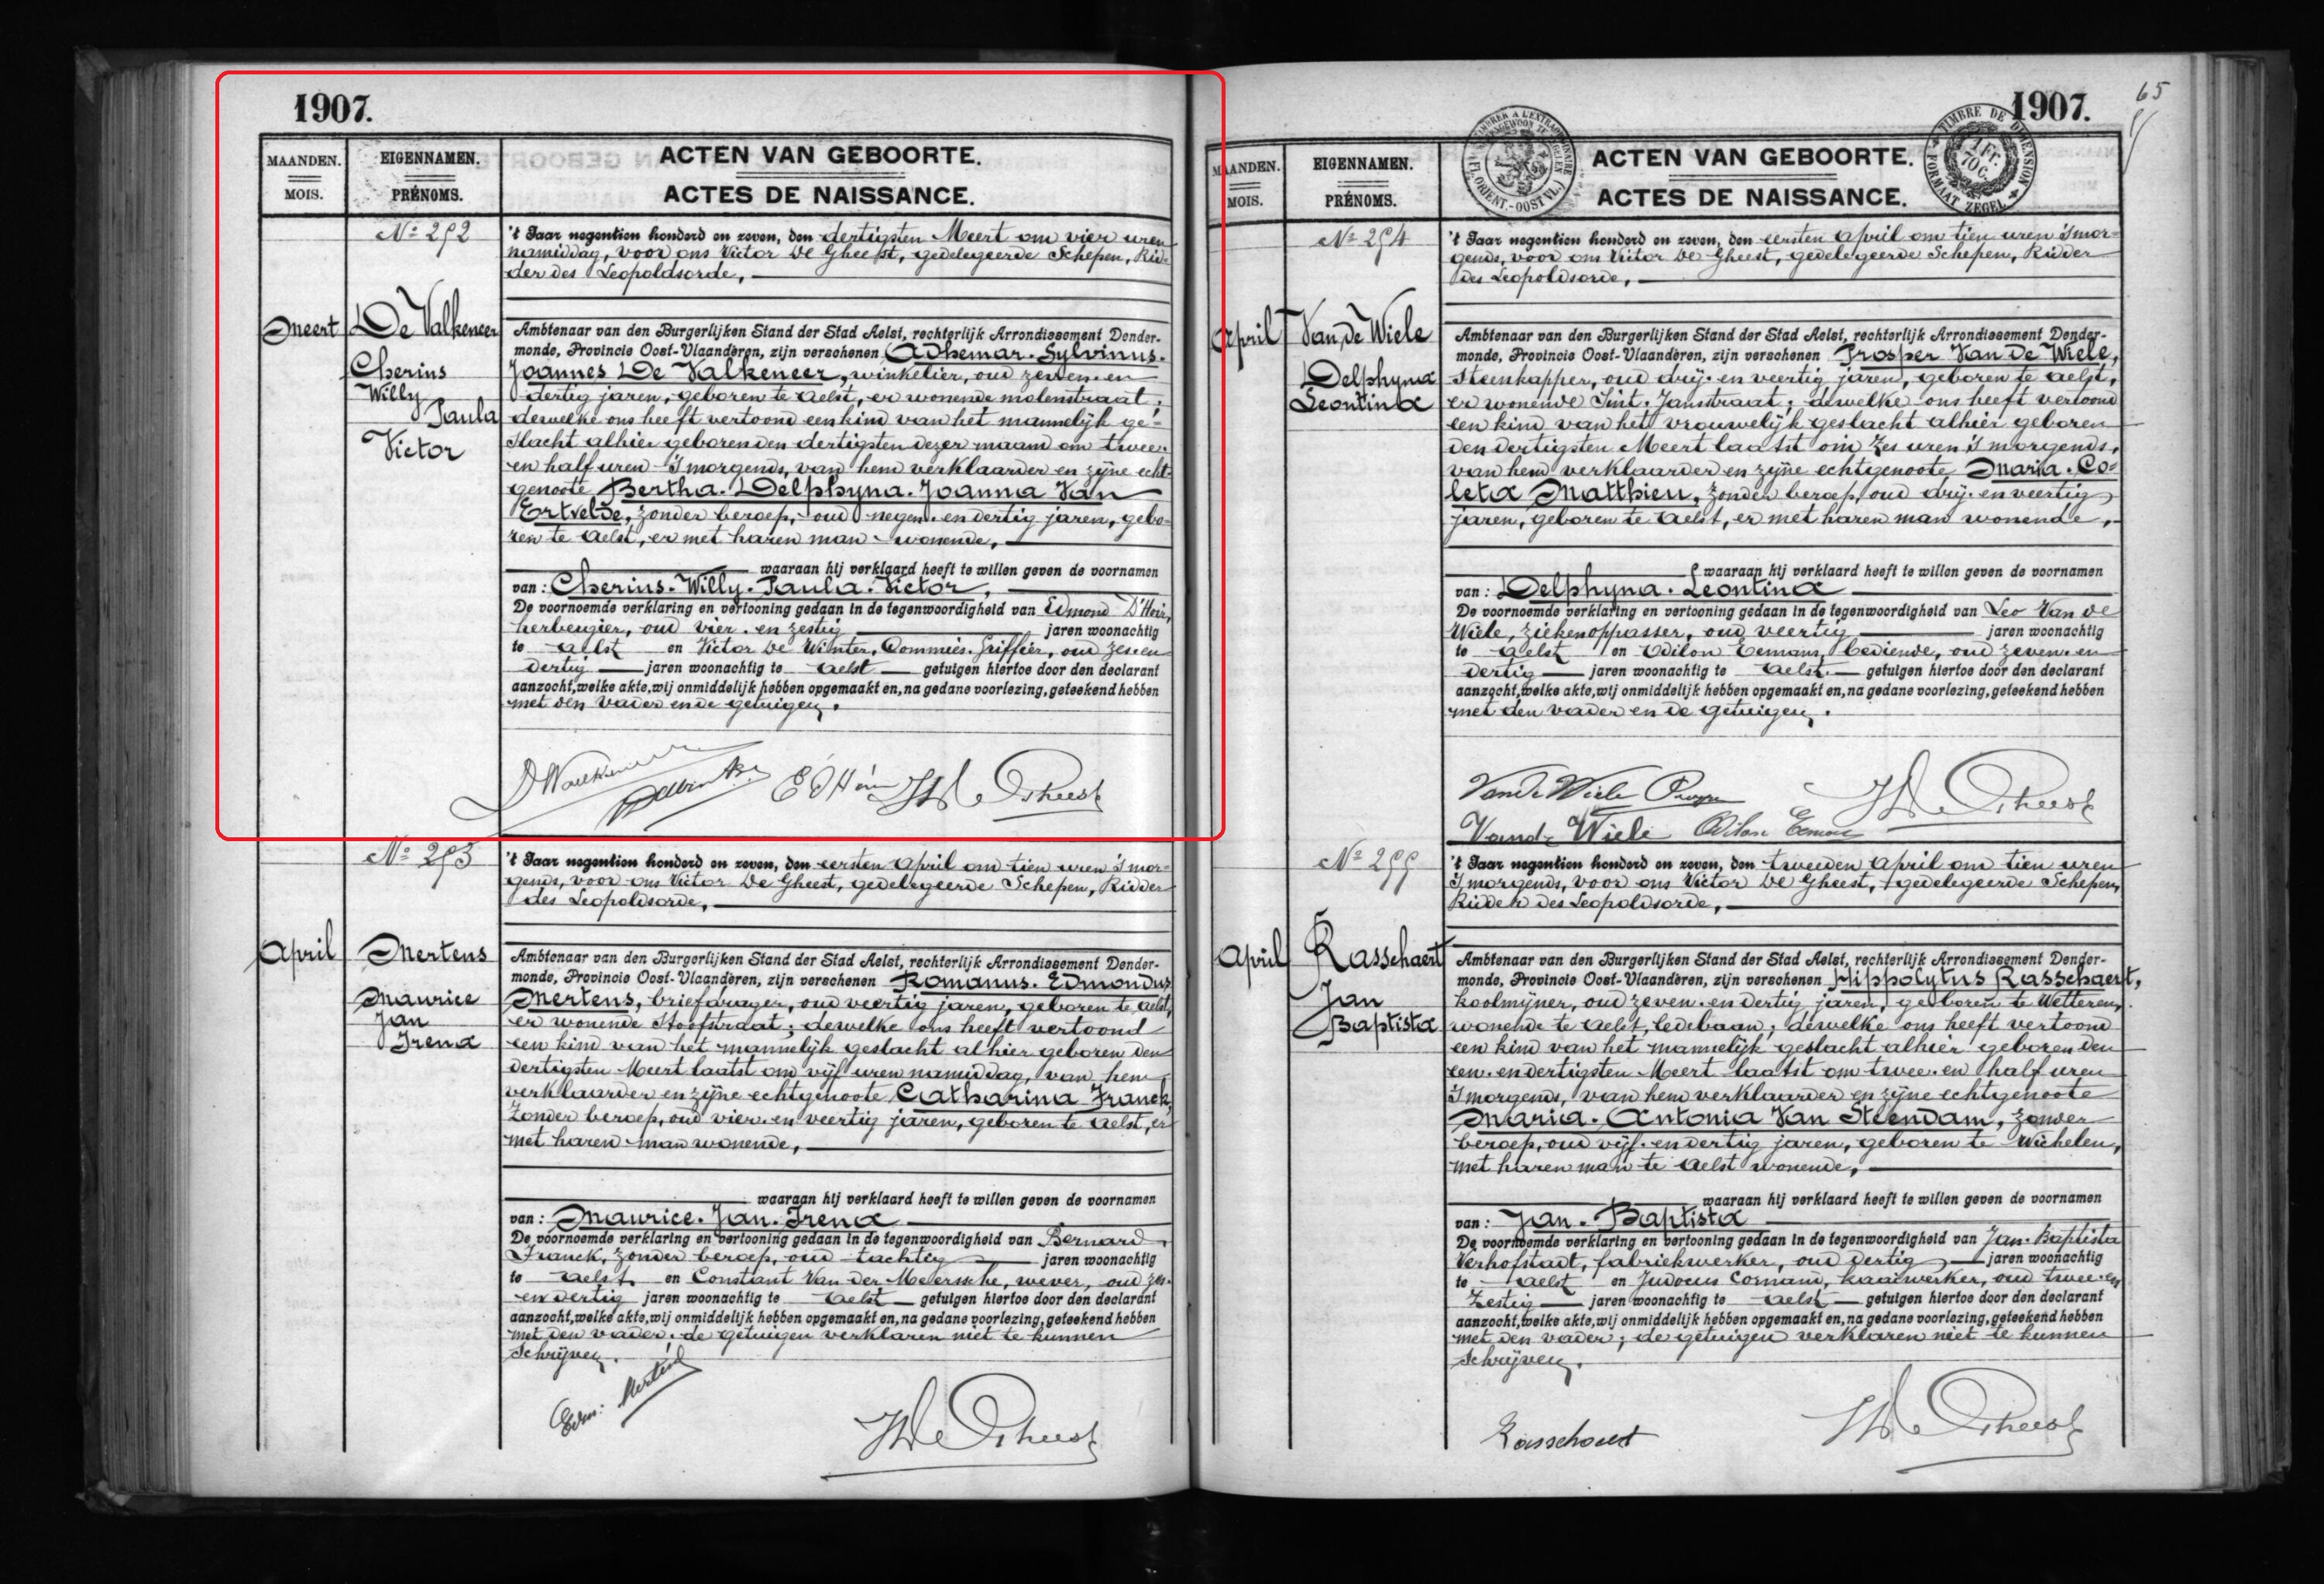 1907.
MAANDEN.
MOIS.
EIGENNAMEN.
PRÉNOMS.
ACTEN VAN GEBOORTE.
ACTES DE NAISSANCE.
No 252
Meert
De Valkeneer
Cherius
Willy
Paula
Victor
't Jaar negentien honderd en zeven, den dertigsten Meert om vier uren
namiddag, voor ons Victor De Gheest, gedelegeerde Schepen, Rid-
der des Leopoldsorde,
Ambtenaar van den Burgerlijken Stand der Stad Aelst, rechterlijk Arrondissement Dender-
monde, Provincie Oost-Vlaanderen, zijn verschenen Adhemar. Sylvinus.
Joannes De Valkeneer, winkelier, oud zeven en
dertig jaren, geboren te Aelst, er wonende molenstraat;
dewelke ons heeft vertoond een kind van het mannelijk ge-
slacht alhier geboren den dertigsten dezer maand om twee.
en half uren 's morgends, van hem verklaarder en zijne echt-
genoote Bertha. Delphyna. Joanna Van
Ertvelde, zonder beroep, oud negen. en dertig jaren, gebo-
ren te Aelst, er met haren man wonende,
waaraan hij verklaard heeft te willen geven de voornamen
van: Cherius. Willy. Paula. Victor,
De voornoemde verklaring en vertooning gedaan in de tegenwoordigheid van Edmond D'Heir,
herbergier, oud vier. en zestig jaren woonachtig
te Aelst en Victor De Winter, Commies. Griffier, oud zes en
dertig jaren woonachtig te Aelst getuigen hiertoe door den declarant
aanzocht, welke akte, wij onmiddelijk hebben opgemaakt en, na gedane voorlezing, geteekend hebben
met den vader en de getuigen.
E D'Heir VDe Gheest
No 253
April
Mertens
Maurice
Jan
Irena
't Jaar negentien honderd en zeven, den eersten April om tien uren 's mor-
gends, voor ons Victor De Gheest, gedelegeerde Schepen, Ridder
des Leopoldsorde,
Ambtenaar van den Burgerlijken Stand der Stad Aelst, rechterlijk Arrondissement Dender-
monde, Provincie Oost-Vlaanderen, zijn verschenen Romanus. Edmondus
Mertens, briefdrager, oud veertig jaren, geboren te Aelst,
er wonende Hoofstraat; dewelke ons heeft vertoond
een kind van het mannelijk geslacht alhier geboren den
dertigsten Meert laatst om vijf uren namiddag, van hem
verklaarder en zijne echtgenoote Catharina Franck,
zonder beroep, oud vier. en veertig jaren, geboren te Aelst, er
met haren man wonende,
waaraan hij verklaard heeft te willen geven de voornamen
van: Maurice. Jan. Irena
De voornoemde verklaring en vertooning gedaan in de tegenwoordigheid van Bernard
Franck, zonder beroep, oud tachtig jaren woonachtig
te Aelst en Constant Van der Meerssche, wever, oud zes.
en dertig jaren woonachtig te Aelst getuigen hiertoe door den declarant
aanzocht, welke akte, wij onmiddelijk hebben opgemaakt en, na gedane voorlezing, geteekend hebben
met den vader. de getuigen verklaren niet te kunnen
schrijven.
Edm: Mertens
VDe Gheest
65
1907.
MAANDEN.
MOIS.
EIGENNAMEN.
PRÉNOMS.
ACTEN VAN GEBOORTE.
ACTES DE NAISSANCE.
(FL. ORIENT.-OOST VL.)
TIMBRE DE DIMENSION
1 Fr.
70 C.
FORMAAT ZEGEL
No 254
April
Van de Wiele
Delphyna
Leontina
't Jaar negentien honderd en zeven, den eersten April om tien uren 's mor-
gends, voor ons Victor De Gheest, gedelegeerde Schepen, Ridder
des Leopoldsorde,
Ambtenaar van den Burgerlijken Stand der Stad Aelst, rechterlijk Arrondissement Dender-
monde, Provincie Oost-Vlaanderen, zijn verschenen Prosper Van De Wiele,
steenkapper, oud drij. en veertig jaren, geboren te Aelst,
er wonende Sint. Jansstraat; dewelke ons heeft vertoond
een kind van het vrouwelijk geslacht alhier geboren
den dertigsten Meert laatst om zes uren 's morgends,
van hem verklaarder en zijne echtgenoote Maria. Co-
leta Matthieu, zonder beroep, oud drij. en veertig
jaren, geboren te Aelst, er met haren man wonende,
waaraan hij verklaard heeft te willen geven de voornamen
van: Delphyna. Leontina
De voornoemde verklaring en vertooning gedaan in de tegenwoordigheid van Leo Van de
Wiele, ziekenoppasser, oud veertig jaren woonachtig
te Aelst en Odilon Eemans, bediende, oud zeven. en
dertig jaren woonachtig te Aelst. getuigen hiertoe door den declarant
aanzocht, welke akte, wij onmiddelijk hebben opgemaakt en, na gedane voorlezing, geteekend hebben
met den vader en de getuigen.
Van de Wiele VDe Gheest
Vande Wiele Odilon Eemans
No 255
April
Rasschaert
Jan
Baptista
't Jaar negentien honderd en zeven, den tweeden April om tien uren
's morgends, voor ons Victor De Gheest, gedelegeerde Schepen,
Ridder des Leopoldsorde,
Ambtenaar van den Burgerlijken Stand der Stad Aelst, rechterlijk Arrondissement Dender-
monde, Provincie Oost-Vlaanderen, zijn verschenen Hippolytus Rasschaert,
koolmijner, oud zeven. en dertig jaren, geboren te Wetteren,
wonende te Aelst, Ledebaan; dewelke ons heeft vertoond
een kind van het mannelijk geslacht alhier geboren den
een. en dertigsten Meert laatst om twee. en half uren
's morgends, van hem verklaarder en zijne echtgenoote
Maria. Antonia Van Steendam, zonder
beroep, oud vijf. en dertig jaren, geboren te Wichelen,
met haren man te Aelst wonende,
waaraan hij verklaard heeft te willen geven de voornamen
van: Jan. Baptista
De voornoemde verklaring en vertooning gedaan in de tegenwoordigheid van Jan. Baptista
Verhofstadt, fabriekwerker, oud dertig jaren woonachtig
te Aelst en Judocus Cornand, kaaiwerker, oud twee. en
zestig jaren woonachtig te Aelst getuigen hiertoe door den declarant
aanzocht, welke akte, wij onmiddelijk hebben opgemaakt en, na gedane voorlezing, geteekend hebben
met den vader; de getuigen verklaren niet te kunnen
schrijven.
Rasschaert
VDe Gheest